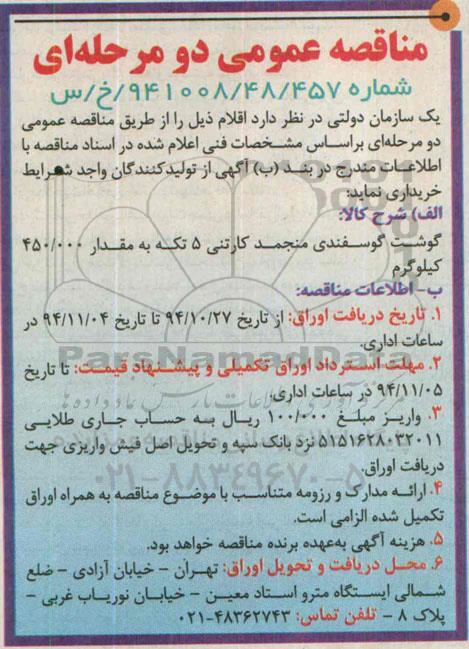 مناقصه عمومی دو مرحله‌ای
شماره ۹۴۱۰۰۸/۴۸/۴۵۷/خ/س
یک سازمان دولتی در نظر دارد اقلام ذیل را از طریق مناقصه عمومی
دو مرحله‌ای براساس مشخصات فنی اعلام شده در اسناد مناقصه با
اطلاعات مندرج در بند (ب) آگهی از تولیدکنندگان واجد شرایط
خریداری نماید:
الف) شرح کالا:
گوشت گوسفندی منجمد کارتنی ۵ تکه به مقدار ۴۵۰/۰۰۰
کیلوگرم
ب- اطلاعات مناقصه:
۱. تاریخ دریافت اوراق: از تاریخ ۹۴/۱۰/۲۷ تا تاریخ ۹۴/۱۱/۰۴ در
ساعات اداری.
ParsNamadData
۲. مهلت استرداد اوراق تکمیلی و پیشنهاد قیمت: تا تاریخ
۹۴/۱۱/۰۵ در ساعات اداری.
۳. واریز مبلغ ۱۰۰/۰۰۰ ریال به حساب جاری طلایی
۵۱۵۱۶۲۸۰۳۲۰۱۱ نزد بانک سپه و تحویل اصل فیش واریزی جهت
دریافت اوراق.
۰۲۱-۸۸۳۴۹۶۷۰-۵
۴. ارائه مدارک و رزومه متناسب با موضوع مناقصه به همراه اوراق
تکمیل شده الزامی است.
۵. هزینه آگهی به‌عهده برنده مناقصه خواهد بود.
۶. محل دریافت و تحویل اوراق: تهران - خیابان آزادی - ضلع
شمالی ایستگاه مترو استاد معین - خیابان نوریاب غربی -
پلاک ۸ - تلفن تماس: ۴۸۳۶۲۷۴۳-۰۲۱